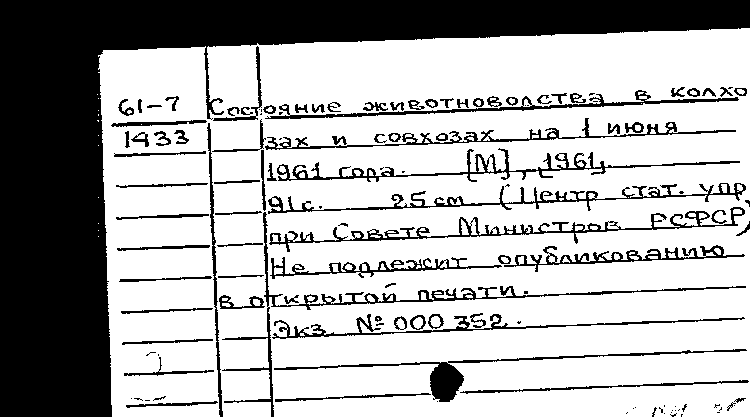 61-7 Состояние животноводства в колхо
1433 зах и совхозах на 1 июня
1961 года. [М], [1961].
91 с. 25 см (Центр стат. упр
при Совете Министров РСФСР)
Не подлежит опубликованию
в открытой печати.
Экз. № 000352.